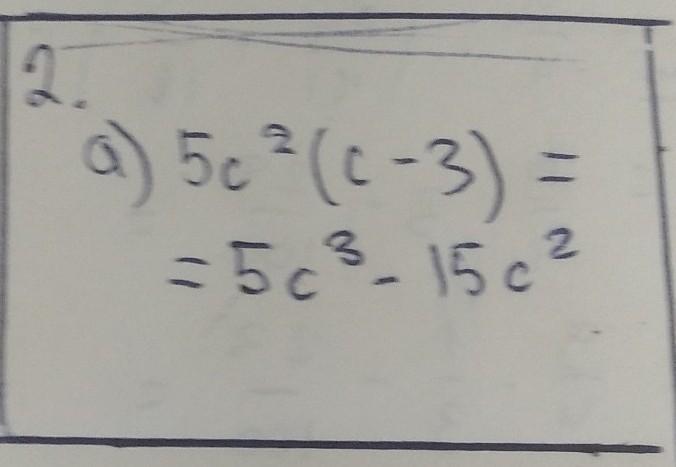 2.
a) 5c²(c-3) =
= 5c³ - 15c²